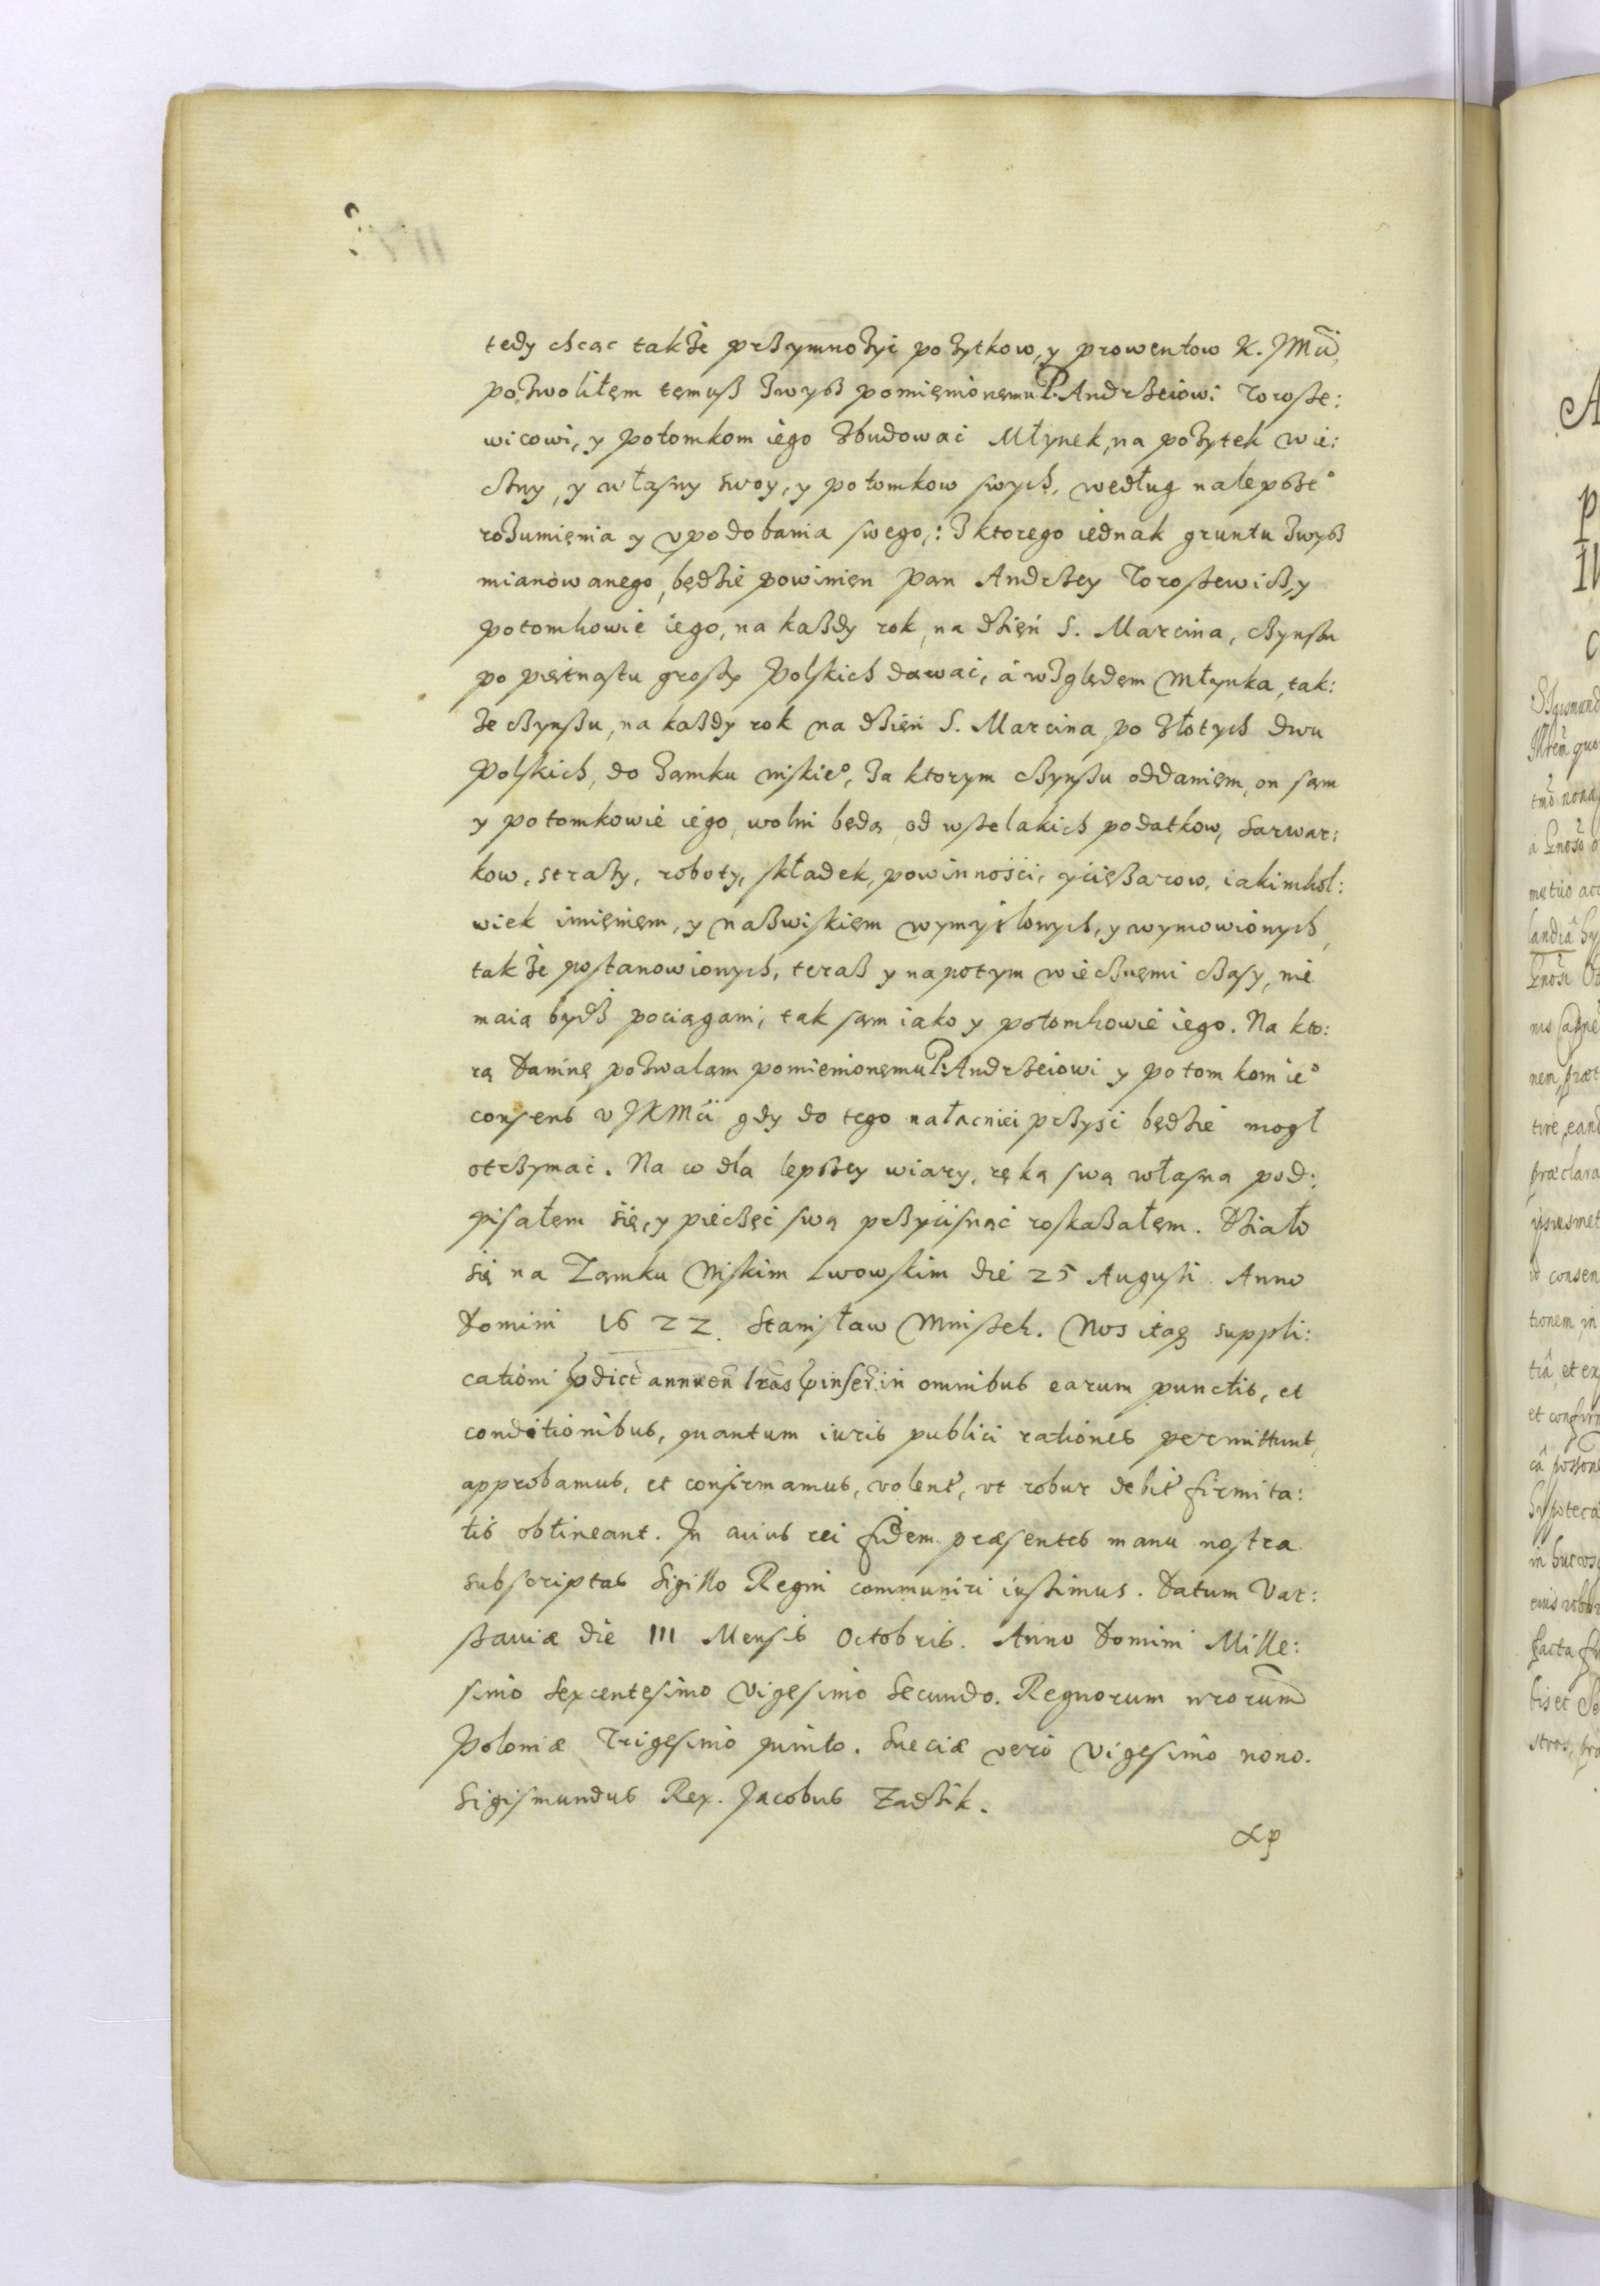 tedy chcąc także przymnożyć pożytkow, y prowentow K. JMći,
pozwoliłem temuż zwysz pomięnionęmu P. Andrzeiowi Torosze:
wicowi, y potomkom iego zbudować Młynek, na pożytek wie:
czny, y własny swoy, y potomkow swych, według nalepsze°
rozumięnia y upodobania swego,: z ktorego iednak gruntu zwysz
mianowanego, będzie powinięn Pan Andrzey Toroszewicz, y
potomkowie iego, na każdy rok, na dzięń S. Marcina, czynszu
po piętnastu groszy Polskich dawać, á względęm Młynka, tak:
że czynszu, na każdy rok na dzięń S. Marcina, po złotych dwu
Polskich, do Zamku niskie°, za ktorym czynszu oddanięm, on sąm
y potomkowie iego, wolni będą, od wszelakich podatkow, szarwar:
kow, straży, roboty, składek, powinności, y ciężarow, iakimkol:
wiek imięnięm, y nazwiskięm wymyślonych, y wymowionych,
także postanowionych, teraz y napotym wiecznęmi czasy, nie
maią bydź pociągani, tak sąm iako y potomkowie iego. Na kto:
rą Daninę pozwalam pomienionęmu P. Andrzeiowi y potomkom ie°
consens v JKMći gdy do tego nałacniei przyść będzie mogł
otrzymać. Na co dla lepszey wiary, ręką swą własną pod:
pisałęm się, y pieczęć swą przycisnąć roskazałęm. Działo
się na Zamku Niskim Lwowskim die 25 Augusti Anno
Domini 1622. Stanisław Mniszek. Nos itaq suppli:
cationi pdict annuen lras pinser. in omnibus earum punctis, et
conditionibus, quantum iuris publici rationes permittunt,
approbamus, et confirmamus, volent, vt robur debit firmita:
tis obtineant. In cuius rei fidem præsentes manu nostra
subscriptas Sigillo Regni communiri iussimus. Datum Var:
szauiæ die III Mensis Octobris. Anno Domini Mille:
simo Sexcentesimo Vigesimo Secundo. Regnorum nrorum
Poloniæ Trigesimo quinto. Sueciæ vero Vigesimo nono.
Sigismundus Rex. Jacobus Zadzik.